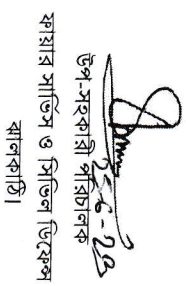 ২৫-৬-২৪
উপ-সহকারী পরিচালক
ফায়ার সার্ভিস ও সিভিল ডিফেন্স
ঝালকাঠি।